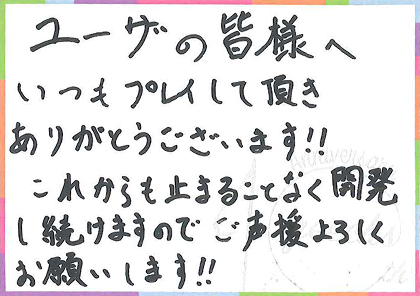 ユーザの皆様へ
いつもプレイして頂き
ありがとうございます!!
これからも止まることなく開発
し続けますのでご声援よろしく
お願いします!!
Anniversary